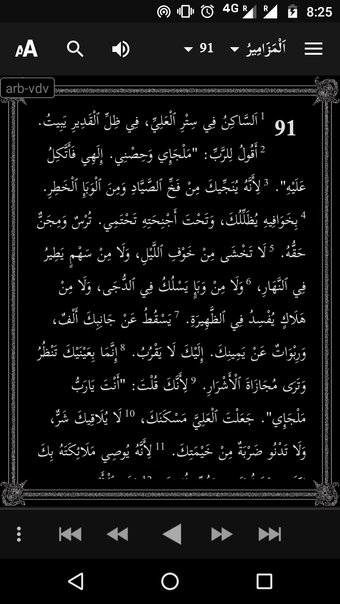 4G 8:25
AA 91 اَلْمَزَامِيرُ
arb-vdv
91 1 اَلسَّاكِنُ فِي سِتْرِ ٱلْعَلِيِّ، فِي ظِلِّ ٱلْقَدِيرِ يَبِيتُ.
2 أَقُولُ لِلرَّبِّ: "مَلْجَإِي وَحِصْنِي. إِلَهِي فَأَتَّكِلُ
عَلَيْهِ". 3 لِأَنَّهُ يُنَجِّيكَ مِنْ فَخِّ ٱلصَّيَّادِ وَمِنَ ٱلْوَبَإِ ٱلْخَطِرِ.
4 بِخَوَافِيهِ يُظَلِّلُكَ، وَتَحْتَ أَجْنِحَتِهِ تَحْتَمِي. تُرْسٌ وَمِجَنٌّ
حَقُّهُ. 5 لَا تَخْشَى مِنْ خَوْفِ ٱللَّيْلِ، وَلَا مِنْ سَهْمٍ يَطِيرُ
فِي ٱلنَّهَارِ، 6 وَلَا مِنْ وَبَإٍ يَسْلُكُ فِي ٱلدُّجَى، وَلَا مِنْ
هَلَاكٍ يُفْسِدُ فِي ٱلظَّهِيرَةِ. 7 يَسْقُطُ عَنْ جَانِبِكَ أَلْفٌ،
وَرِبْوَاتٌ عَنْ يَمِينِكَ. إِلَيْكَ لَا يَقْرُبُ. 8 إِنَّمَا بِعَيْنَيْكَ تَنْظُرُ
وَتَرَى مُجَازَاةَ ٱلْأَشْرَارِ. 9 لِأَنَّكَ قُلْتَ: "أَنْتَ يَارَبُّ
مَلْجَإِي". جَعَلْتَ ٱلْعَلِيَّ مَسْكَنَكَ، 10 لَا يُلَاقِيكَ شَرٌّ،
وَلَا تَدْنُو ضَرْبَةٌ مِنْ خَيْمَتِكَ. 11 لِأَنَّهُ يُوصِي مَلَائِكَتَهُ بِكَ